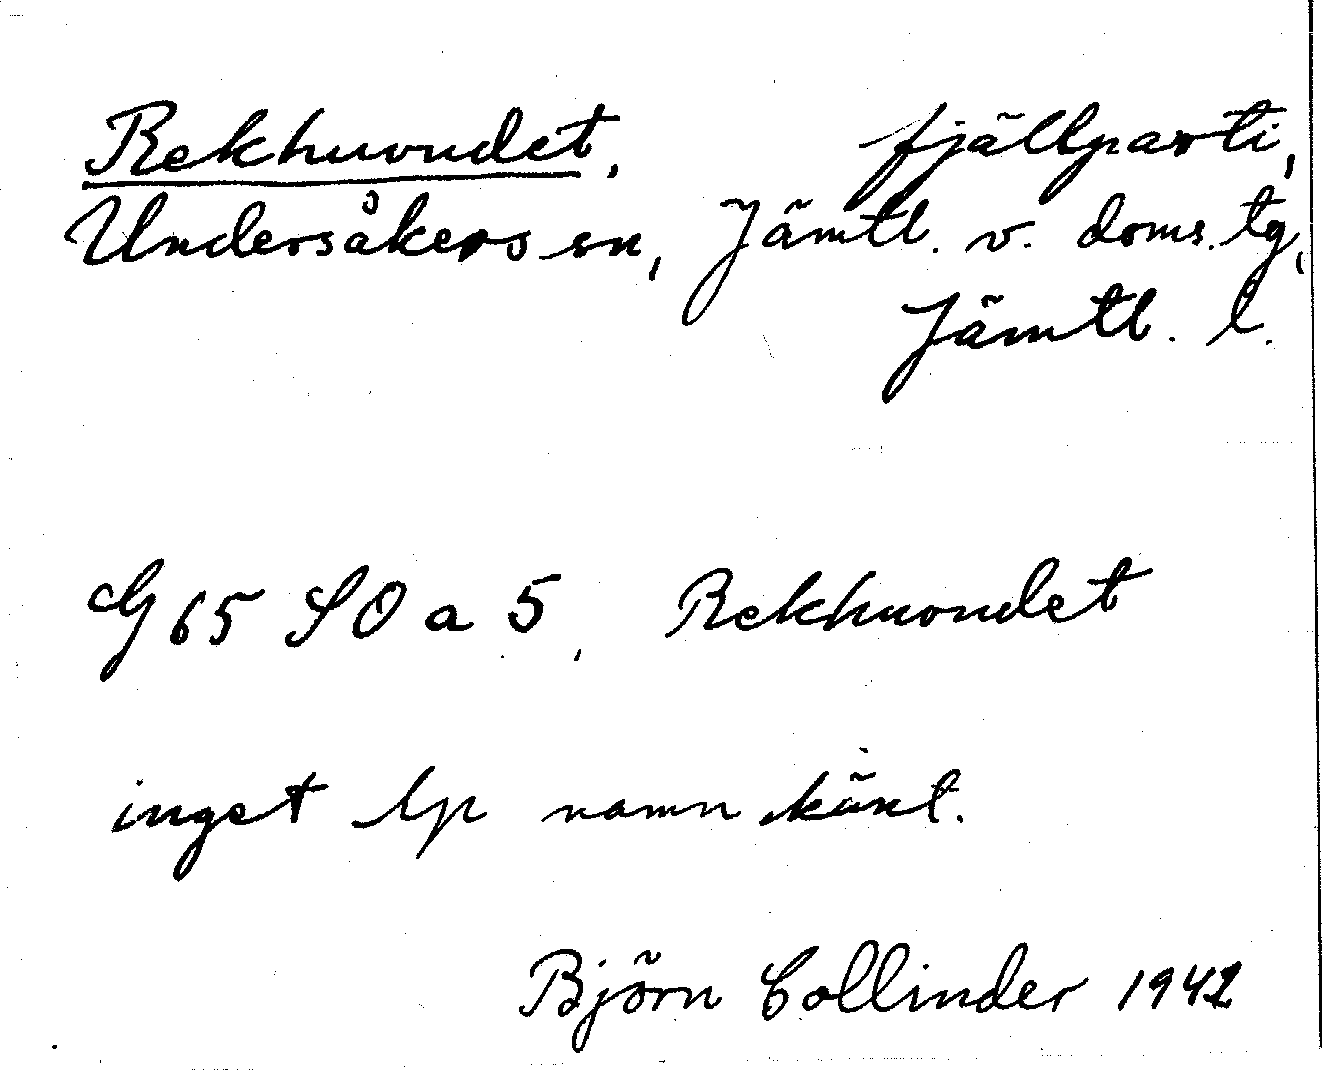 Rekhuvudet, fjällparti,
Undersåkers sn, Jämtl. v. doms. tg,
Jämtl. l.
G 65 SO a 5, Rekhuvudet
inget lp namn känt.
Björn Collinder 1942